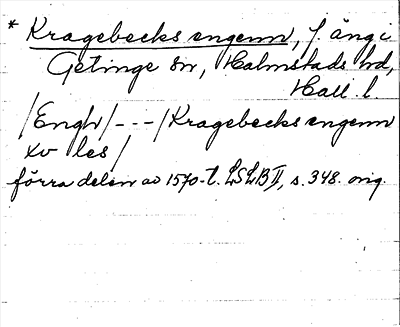 * Kragebecks engenn, f. äng i
Getinge sn, Halmstads hd,
Hall. l.
/Engh/ - - - /Kragebecks engenn
xv les/
förra delen av 1570-t. LSLB II, s. 348. orig.